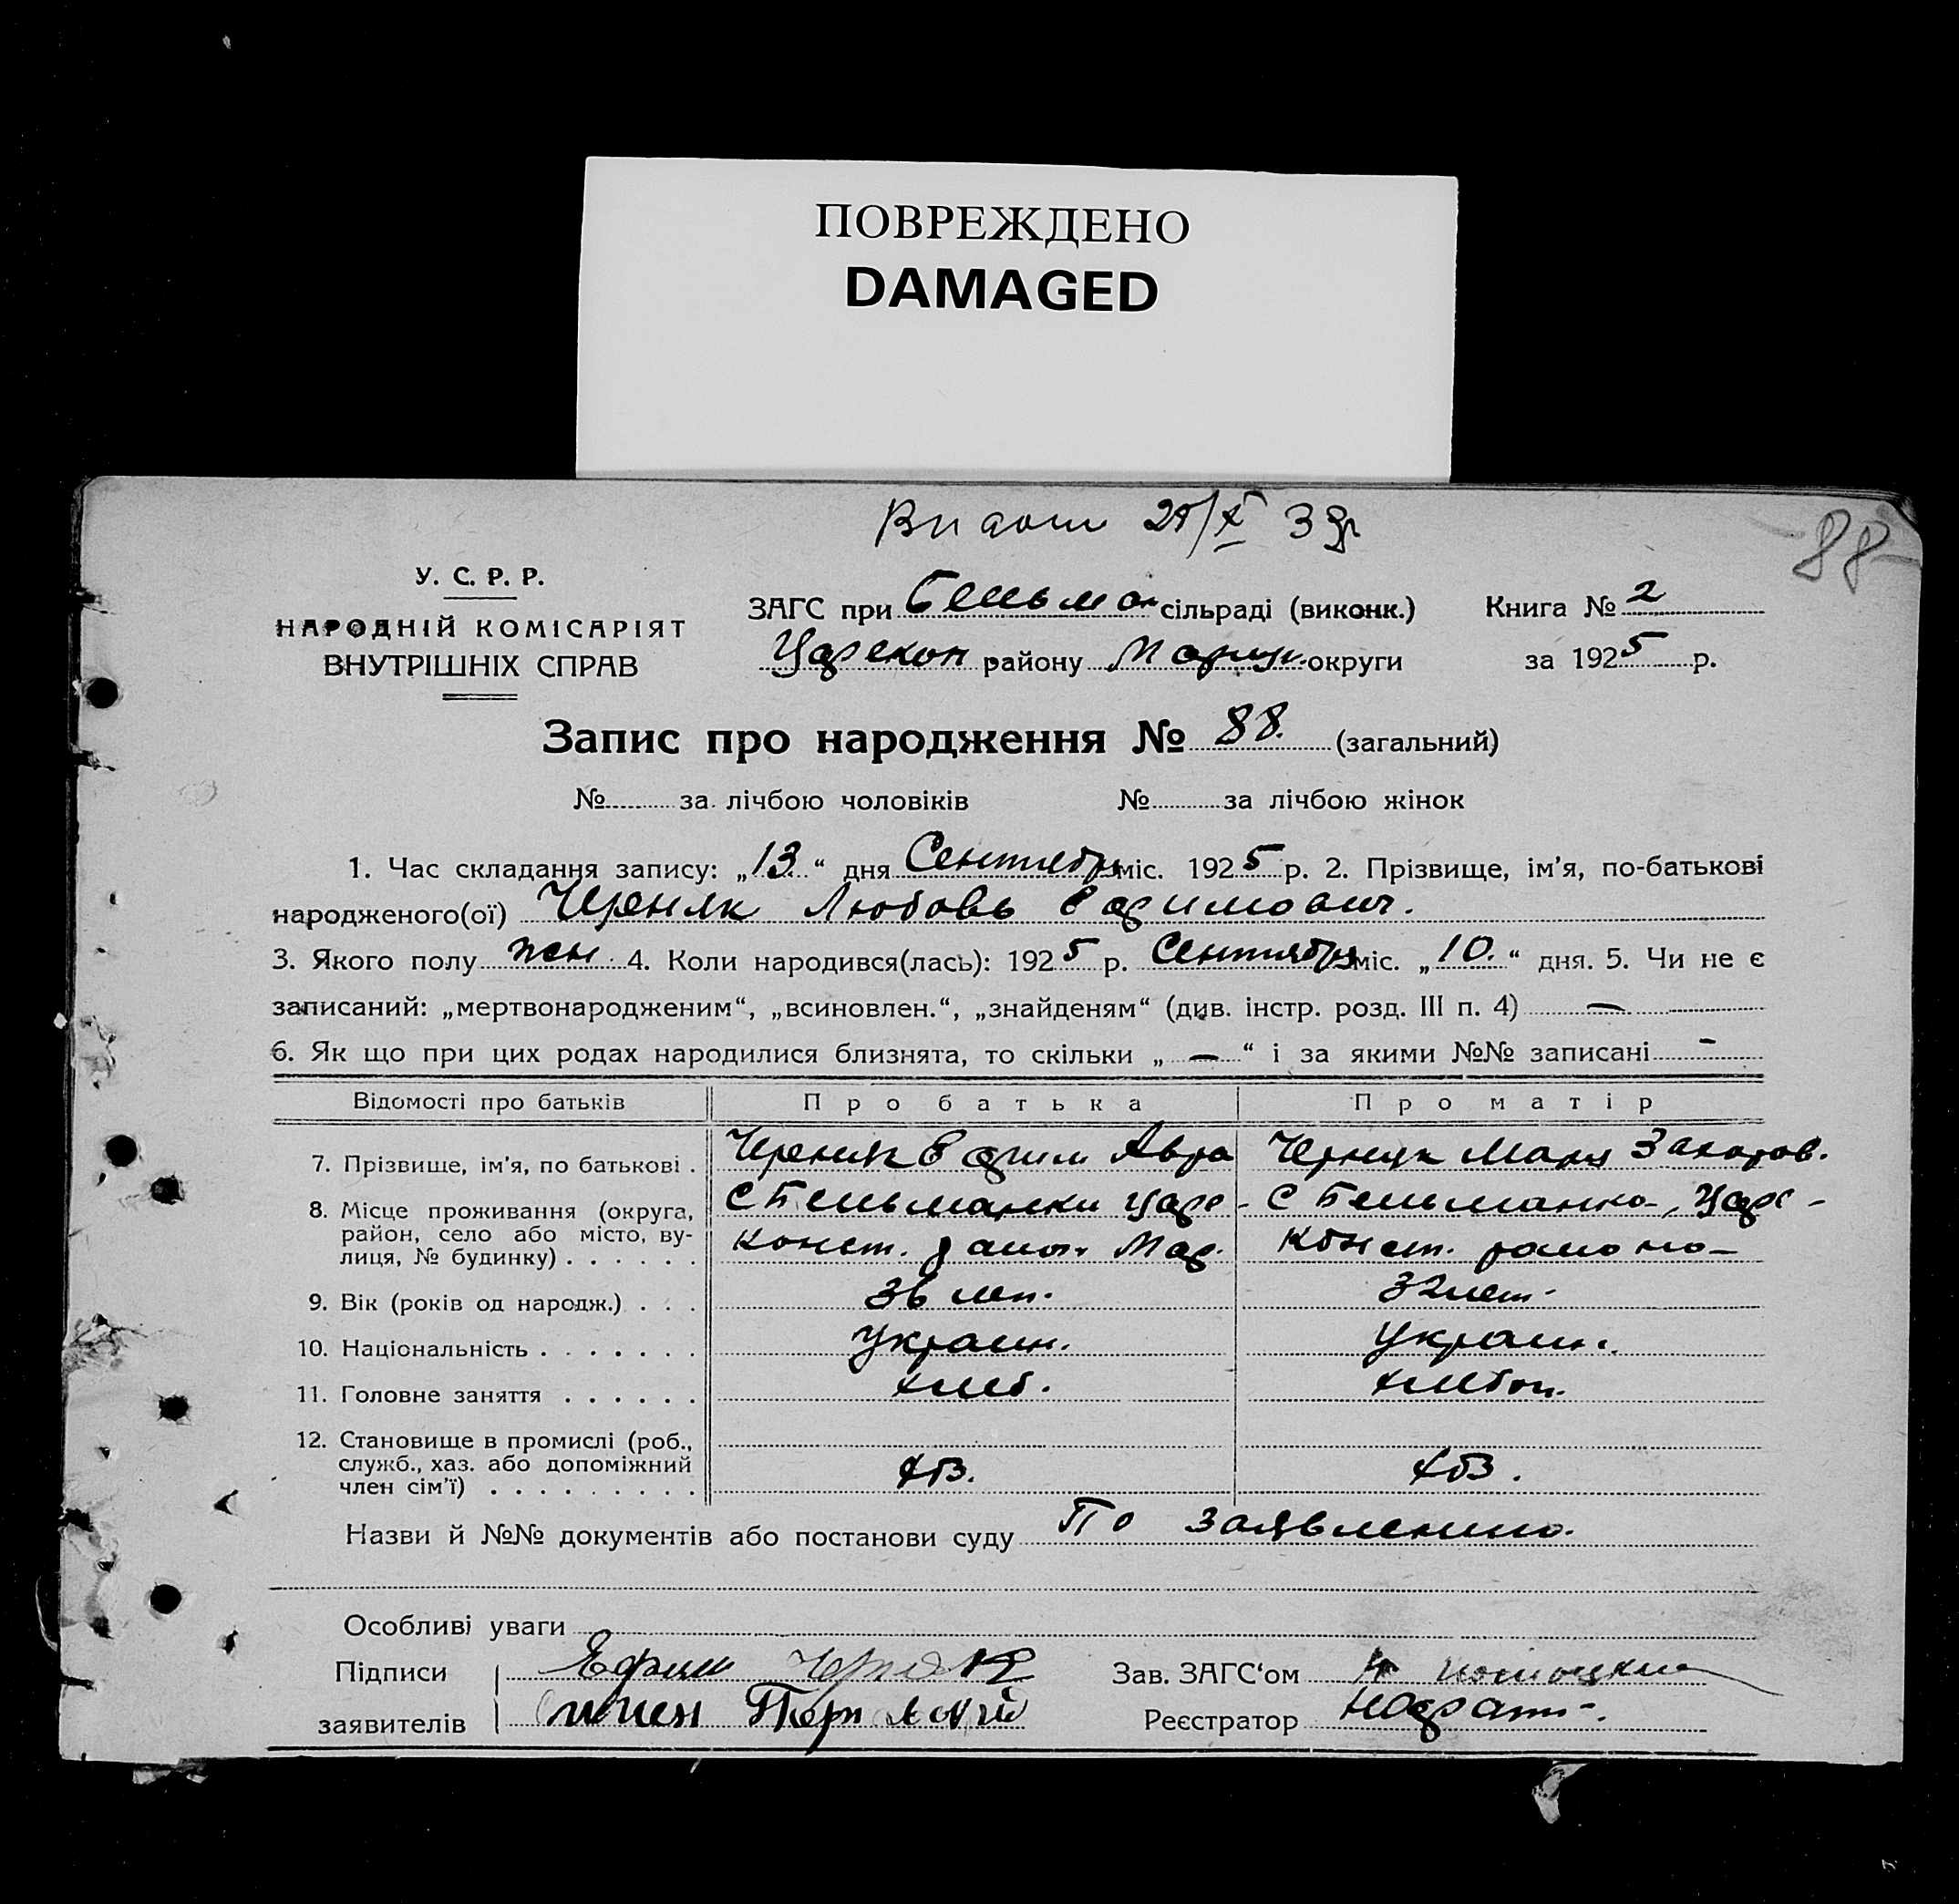 ПОВРЕЖДЕНО
DAMAGED
88
У. С. Р. Р.
НАРОДНІЙ КОМІСАРІЯТ
ВНУТРІШНІХ СПРАВ
ЗАГС при Бельман сільраді (виконк.)
Царекон району Мариуп. округи
Книга № 2
за 1925 р.
Запис про народження № 88. (загальний)
№ за лічбою чоловіків № за лічбою жінок
1. Час складання запису: „13.“ дня Сентября міс. 1925 р. 2. Прізвище, ім’я, по-батькові
народженого(ої) Черняк Любовь
3. Якого полу жен. 4. Коли народився(лась): 1925 р. Сентября міс. „10.“ дня. 5. Чи не є
записаний: „мертвонародженим“, „всиновлен.“, „знайденям“ (див. інстр. розд. III п. 4) —
6. Як що при цих родах народилися близнята, то скільки „—“ і за якими №№ записані -
Відомості про батьків Про батька Про матір
7. Прізвище, ім’я, по батькові . Черняк Авра Черняк Мария Захаров.
8. Місце проживання (округа, район, село або місто, вулиця, № будинку) . . . . . . С Бельманки Царе- С Бельманка, Царе-
Конст. района Мар. Конст. района
9. Вік (років од народж.) . . . 36 лет. 32 лет.
10. Національність . . . . . . . Украин. Украин.
11. Головне заняття . . . . . . хлеб. хлебоп.
12. Становище в промислі (роб., служб., хаз. або допоміжний член сім’ї) . . . . . . . . .
Назви й №№ документів або постанови суду По заявлению.
Особливі уваги
Підписи Ефим Черняк
заявителів
Зав. ЗАГС‘ом
Реєстратор